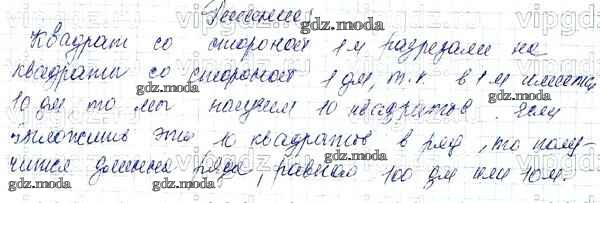 Решение:
Квадрат со стороной 1 м разрезали на
квадраты со стороной 1 дм, т.к. в 1 м имеется
10 дм, то мы получим 10 квадратов. Если
выложить эти 10 квадратов в ряд, то полу-
чится длинна ряда, равная 100 дм или 10 м.
gdz.moda
gdz.moda
gdz.moda
gdz.moda
gdz.moda
gdz.moda
gdz.moda